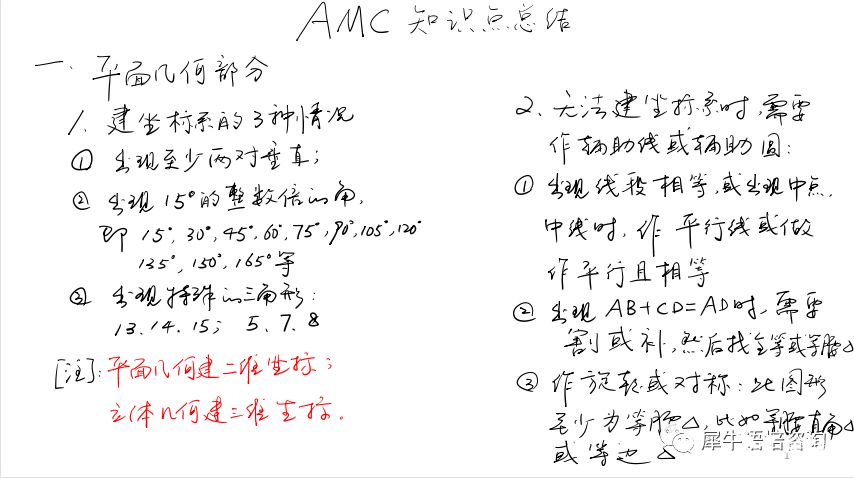 AMC 知识点总结
一、平面几何部分
1、建坐标系的3种情况
① 出现至少两对垂直；
② 出现15°的整数倍的角，
即 15°, 30°, 45°, 60°, 75°, 90°, 105°, 120°
135°, 150°, 165°等
③ 出现特殊的三角形：
13、14、15； 5、7、8
[注]：平面几何建二维坐标；
立体几何建三维坐标。
2、无法建坐标系时，需要
作辅助线或辅助圆：
① 出现线段相等，或出现中点，
中线时，作平行线或做
作平行且相等
② 出现 AB+CD=AD时，需要
割或补，然后找全等或等腰△
③ 作旋转或对称：此图形
至少为等腰△，比如等腰直角△
或等边△
犀牛语言咨询